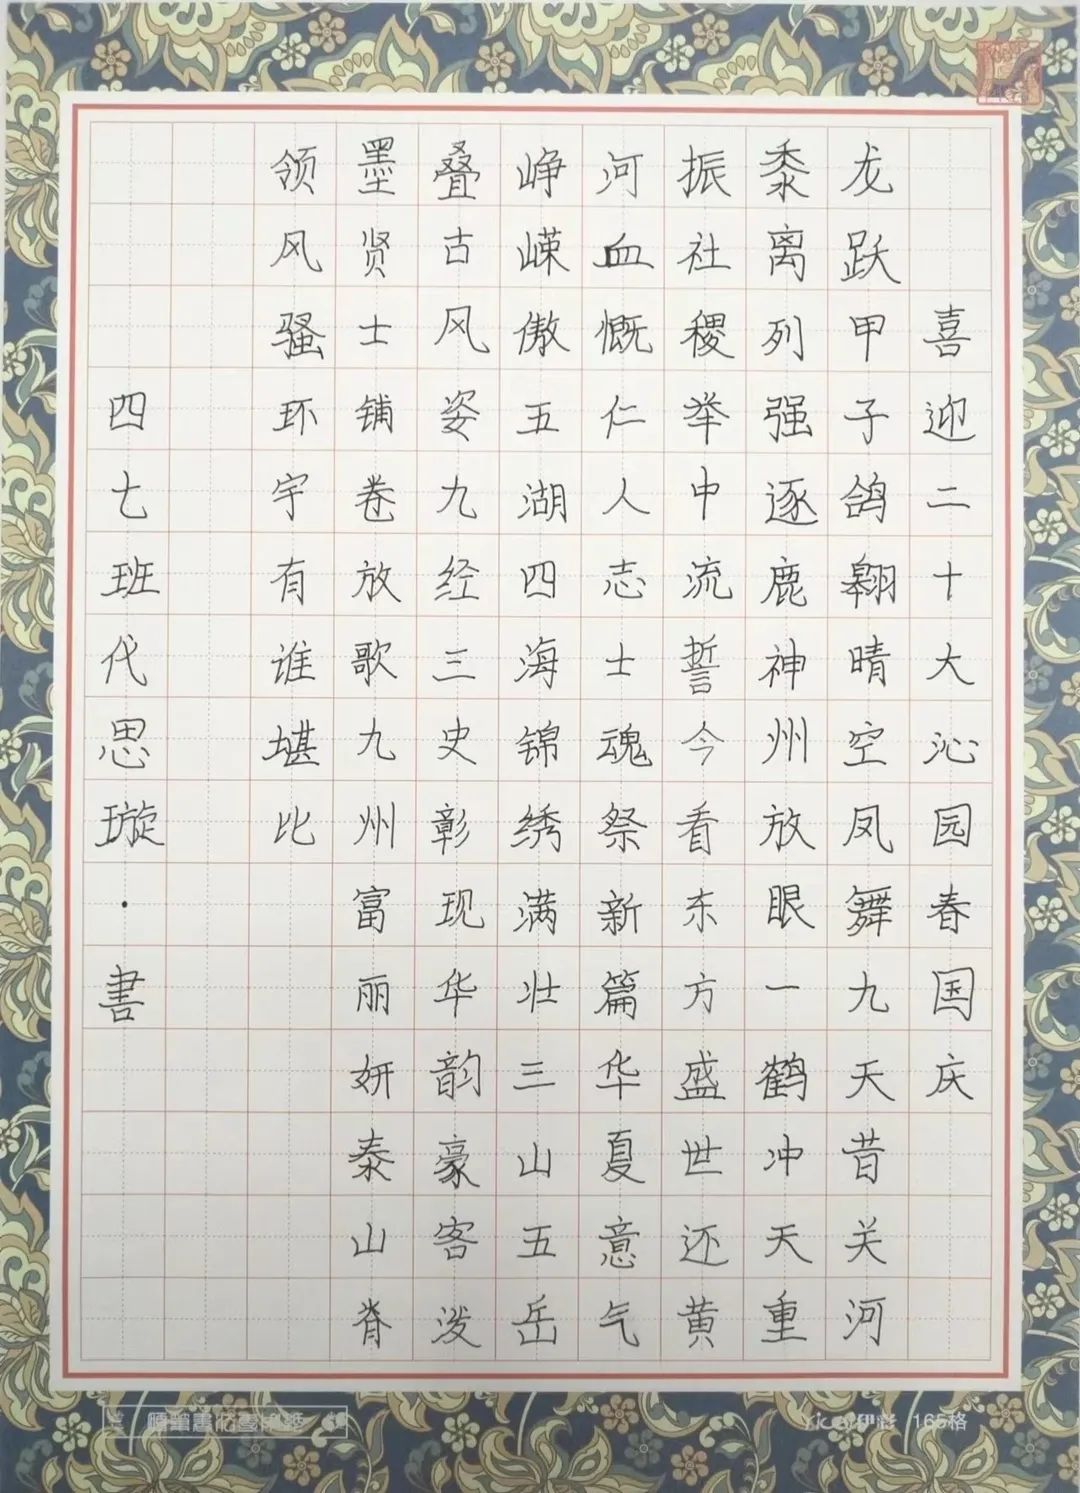 喜迎二十大沁园春国庆
龙跃甲子鸽翱晴空凤舞九天昔关河
黍离列强逐鹿神州放眼一鹤冲天重
振社稷举中流誓今看东方盛世还黄
河血慨仁人志士魂祭新篇华夏意气
峥嵘傲五湖四海锦绣满壮三山五岳
叠古风姿九经三史彰现华韵豪客泼
墨贤士铺卷放歌九州富丽妍泰山脊
领风骚环宇有谁堪比
四七班代思璇·書
伊彩 165格